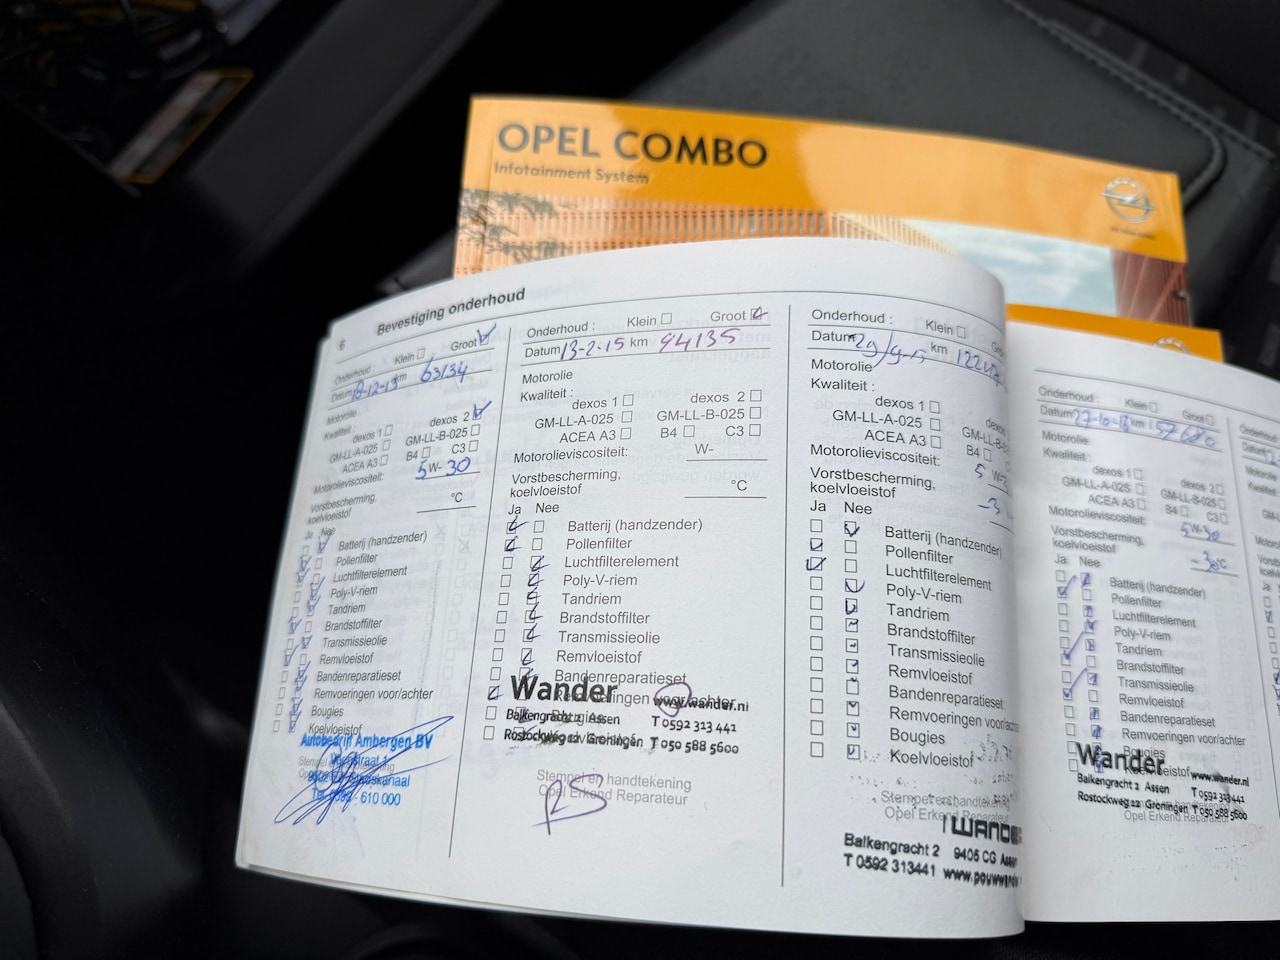 OPEL COMBO
Infotainment System
Bevestiging onderhoud
6
Onderhoud : Klein Groot
Datum 18-12-13 km 63134
Motorolie
Kwaliteit :
dexos 1 dexos 2
GM-LL-A-025 GM-LL-B-025
ACEA A3 B4 C3
Motorolieviscositeit: 5 W- 30
Vorstbescherming,
koelvloeistof °C
Ja Nee
Batterij (handzender)
Pollenfilter
Luchtfilterelement
Poly-V-riem
Tandriem
Brandstoffilter
Transmissieolie
Remvloeistof
Bandenreparatieset
Remvoeringen voor/achter
Bougies
Koelvloeistof
Autobedrijf Ambergen BV
610 000
Onderhoud : Klein Groot
Datum 13-2-15 km 94135
Motorolie
Kwaliteit :
dexos 1 dexos 2
GM-LL-A-025 GM-LL-B-025
ACEA A3 B4 C3
Motorolieviscositeit: W-
Vorstbescherming,
koelvloeistof °C
Ja Nee
Batterij (handzender)
Pollenfilter
Luchtfilterelement
Poly-V-riem
Tandriem
Brandstoffilter
Transmissieolie
Remvloeistof
Bandenreparatieset
Remvoeringen voor/achter
Wander www.wander.nl
Balkengracht 2 Assen T 0592 313 441
Rostockweg 12 Groningen T 050 588 5600
Stempel en handtekening
Opel Erkend Reparateur
Onderhoud : Klein
Datum km
Motorolie
Kwaliteit :
dexos 1 dexos
GM-LL-A-025 GM-LL-B-0
ACEA A3 B4
Motorolieviscositeit: 5 W-
Vorstbescherming,
koelvloeistof
Ja Nee
Batterij (handzender)
Pollenfilter
Luchtfilterelement
Poly-V-riem
Tandriem
Brandstoffilter
Transmissieolie
Remvloeistof
Bandenreparatieset
Remvoeringen voor/achter
Bougies
Koelvloeistof
Stempel en handtekening
Opel Erkend Reparateur
Balkengracht 2 9405 CG Assen
T 0592 313441
Onderhoud : Klein Groot
Datum km
Motorolie
Kwaliteit :
dexos 1 dexos 2
GM-LL-A-025 GM-LL-B-025
ACEA A3 B4 C3
Motorolieviscositeit: 5 W- 30
Vorstbescherming,
koelvloeistof -30 °C
Ja Nee
Batterij (handzender)
Pollenfilter
Luchtfilterelement
Poly-V-riem
Tandriem
Brandstoffilter
Transmissieolie
Remvloeistof
Bandenreparatieset
Remvoeringen voor/achter
Bougies
Koelvloeistof
Wander www.wander.nl
Balkengracht 2 Assen T 0592 313441
Rostockweg 12 Groningen T 050 588 5600
Opel Erkend Reparateur